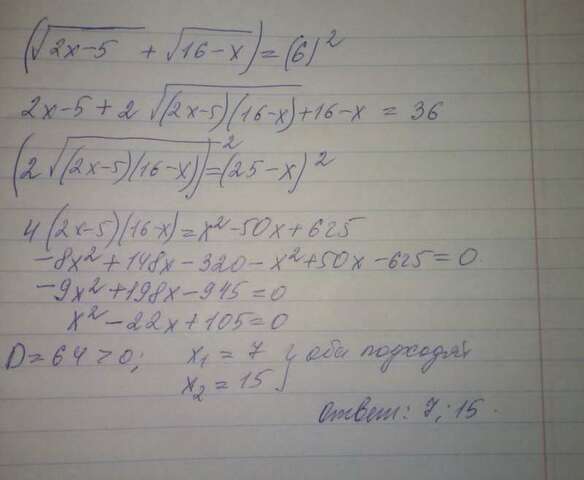 (√(2x-5) + √(16-x)) = (6)²
2x-5 + 2 √((2x-5)(16-x)) + 16-x = 36
(2 √((2x-5)(16-x)))² = (25-x)²
4 (2x-5)(16-x) = x² - 50x + 625
-8x² + 148x - 320 - x² + 50x - 625 = 0.
-9x² + 198x - 945 = 0
x² - 22x + 105 = 0
D = 64 > 0; x₁ = 7 } оба подходят
x₂ = 15
ответ: 7; 15.